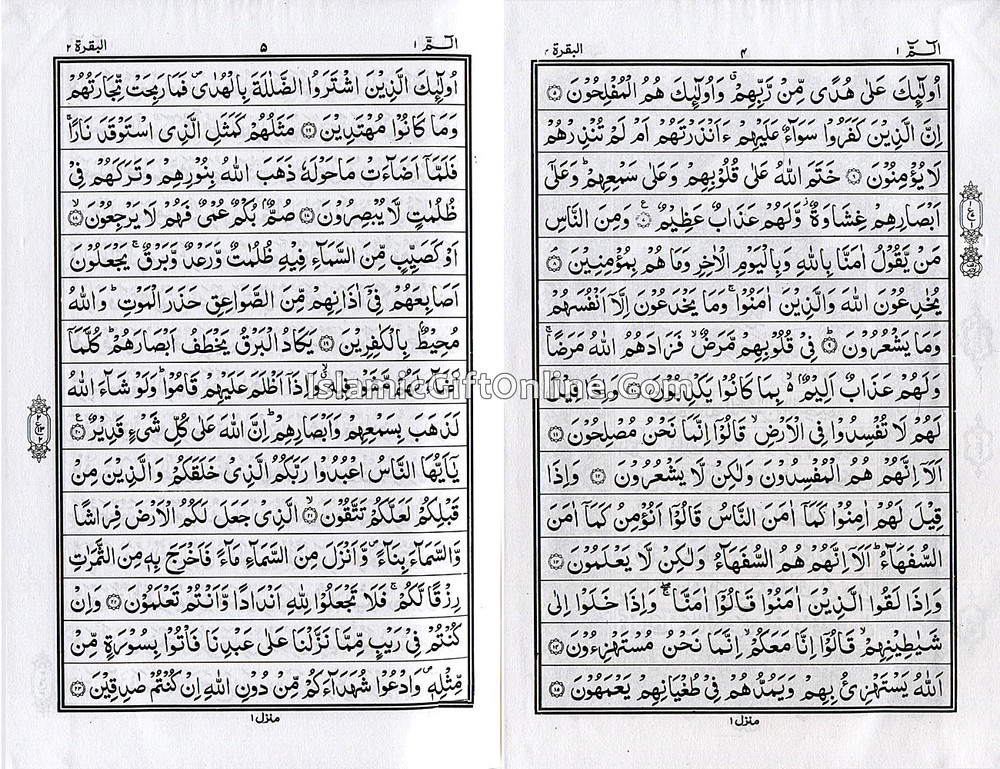 الٓمّٓ ١
٤
البقرة ٢
اُولٰٓئِكَ عَلٰى هُدًى مِّنْ رَّبِّهِمْ ۗ وَاُولٰٓئِكَ هُمُ الْمُفْلِحُوْنَ ۝٥
اِنَّ الَّذِيْنَ كَفَرُوْا سَوَآءٌ عَلَيْهِمْ ءَاَنْذَرْتَهُمْ اَمْ لَمْ تُنْذِرْهُمْ
لَا يُؤْمِنُوْنَ ۝٦ خَتَمَ اللّٰهُ عَلٰى قُلُوْبِهِمْ وَعَلٰى سَمْعِهِمْ ؕ وَعَلٰٓى
اَبْصَارِهِمْ غِشَاوَةٌ ؗ وَّلَهُمْ عَذَابٌ عَظِيْمٌ ۝٧ وَمِنَ النَّاسِ
مَنْ يَّقُوْلُ اٰمَنَّا بِاللّٰهِ وَبِالْيَوْمِ الْاٰخِرِ وَمَا هُمْ بِمُؤْمِنِيْنَ ۝٨
يُخٰدِعُوْنَ اللّٰهَ وَالَّذِيْنَ اٰمَنُوْا ۚ وَمَا يَخْدَعُوْنَ اِلَّآ اَنْفُسَهُمْ
وَمَا يَشْعُرُوْنَ ۝٩ فِيْ قُلُوْبِهِمْ مَّرَضٌ ۙ فَزَادَهُمُ اللّٰهُ مَرَضًا ۚ
وَلَهُمْ عَذَابٌ اَلِيْمٌ ۢ ۙ بِمَا كَانُوْا يَكْذِبُوْنَ ۝١٠ وَاِذَا قِيْلَ
لَهُمْ لَا تُفْسِدُوْا فِى الْاَرْضِ ۙ قَالُوْٓا اِنَّمَا نَحْنُ مُصْلِحُوْنَ ۝١١
اَلَآ اِنَّهُمْ هُمُ الْمُفْسِدُوْنَ وَلٰكِنْ لَّا يَشْعُرُوْنَ ۝١٢ وَاِذَا
قِيْلَ لَهُمْ اٰمِنُوْا كَمَآ اٰمَنَ النَّاسُ قَالُوْٓا اَنُؤْمِنُ كَمَآ اٰمَنَ
السُّفَهَآءُ ؕ اَلَآ اِنَّهُمْ هُمُ السُّفَهَآءُ وَلٰكِنْ لَّا يَعْلَمُوْنَ ۝١٣
وَاِذَا لَقُوا الَّذِيْنَ اٰمَنُوْا قَالُوْٓا اٰمَنَّا ۖۚ وَاِذَا خَلَوْا اِلٰى
شَيٰطِيْنِهِمْ ۙ قَالُوْٓا اِنَّا مَعَكُمْ ۙ اِنَّمَا نَحْنُ مُسْتَهْزِءُوْنَ ۝١٤
اَللّٰهُ يَسْتَهْزِئُ بِهِمْ وَيَمُدُّهُمْ فِيْ طُغْيَانِهِمْ يَعْمَهُوْنَ ۝١٥
منزل ١
الٓمّٓ ١
٥
البقرة ٢
اُولٰٓئِكَ الَّذِيْنَ اشْتَرَوُا الضَّلٰلَةَ بِالْهُدٰى ۪ فَمَا رَبِحَتْ تِّجَارَتُهُمْ
وَمَا كَانُوْا مُهْتَدِيْنَ ۝١٦ مَثَلُهُمْ كَمَثَلِ الَّذِى اسْتَوْقَدَ نَارًا ۚ
فَلَمَّآ اَضَآءَتْ مَا حَوْلَهٗ ذَهَبَ اللّٰهُ بِنُوْرِهِمْ وَتَرَكَهُمْ فِيْ
ظُلُمٰتٍ لَّا يُبْصِرُوْنَ ۝١٧ صُمٌّۢ بُكْمٌ عُمْيٌ فَهُمْ لَا يَرْجِعُوْنَ ۝١٨
اَوْ كَصَيِّبٍ مِّنَ السَّمَآءِ فِيْهِ ظُلُمٰتٌ وَّرَعْدٌ وَّبَرْقٌ ۚ يَجْعَلُوْنَ
اَصَابِعَهُمْ فِيْٓ اٰذَانِهِمْ مِّنَ الصَّوَاعِقِ حَذَرَ الْمَوْتِ ؕ وَاللّٰهُ
مُحِيْطٌۢ بِالْكٰفِرِيْنَ ۝١٩ يَكَادُ الْبَرْقُ يَخْطَفُ اَبْصَارَهُمْ ؕ كُلَّمَآ
اَضَآءَ لَهُمْ مَّشَوْا فِيْهِ ۙ وَاِذَآ اَظْلَمَ عَلَيْهِمْ قَامُوْا ؕ وَلَوْ شَآءَ اللّٰهُ
لَذَهَبَ بِسَمْعِهِمْ وَاَبْصَارِهِمْ ؕ اِنَّ اللّٰهَ عَلٰى كُلِّ شَيْءٍ قَدِيْرٌ ۝٢٠
يٰٓاَيُّهَا النَّاسُ اعْبُدُوْا رَبَّكُمُ الَّذِيْ خَلَقَكُمْ وَالَّذِيْنَ مِنْ
قَبْلِكُمْ لَعَلَّكُمْ تَتَّقُوْنَ ۝٢١ الَّذِيْ جَعَلَ لَكُمُ الْاَرْضَ فِرَاشًا
وَّالسَّمَآءَ بِنَآءً ۪ وَّاَنْزَلَ مِنَ السَّمَآءِ مَآءً فَاَخْرَجَ بِهٖ مِنَ الثَّمَرٰتِ
رِزْقًا لَّكُمْ ۚ فَلَا تَجْعَلُوْا لِلّٰهِ اَنْدَادًا وَّاَنْتُمْ تَعْلَمُوْنَ ۝٢٢ وَاِنْ
كُنْتُمْ فِيْ رَيْبٍ مِّمَّا نَزَّلْنَا عَلٰى عَبْدِنَا فَاْتُوْا بِسُوْرَةٍ مِّنْ
مِّثْلِهٖ ۪ وَادْعُوْا شُهَدَآءَكُمْ مِّنْ دُوْنِ اللّٰهِ اِنْ كُنْتُمْ صٰدِقِيْنَ ۝٢٣
منزل ١
IslamicGiftOnline.Com